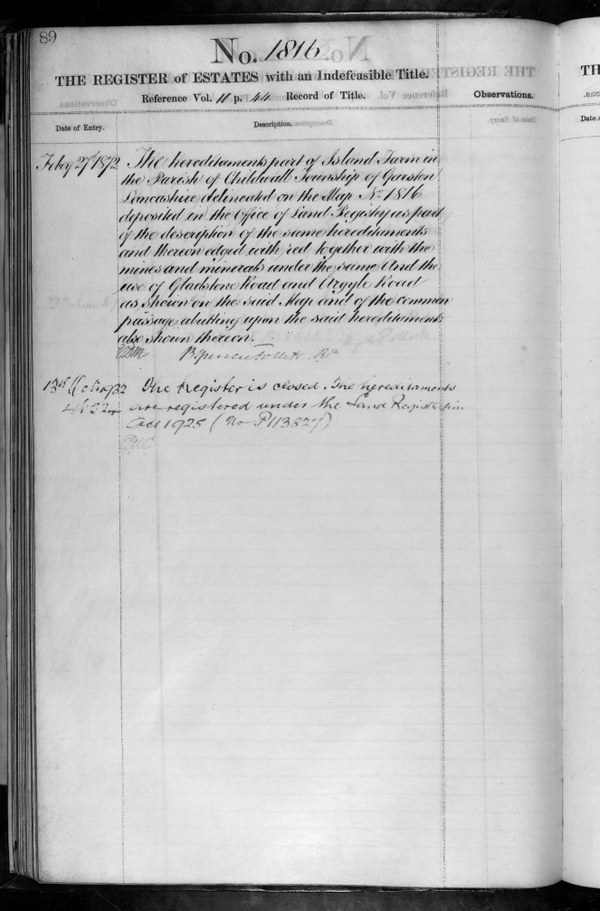 89
No. 1816
THE REGISTER of ESTATES with an Indefeasible Title.
Reference Vol. 11 p. 44 Record of Title.
Observations.
Date of Entry.
Description.
Feby 27th 1872
The hereditaments part of Island Farm in
the Parish of Childwall Township of Garston
Lancashire delineated on the Map No. 1816
deposited in the Office of Land Registry as part
of the description of the same hereditaments
and thereon edged with red together with the
mines and minerals under the same And the
use of Gladstone Road and Argyle Road
as shown on the said Map and of the common
passage abutting upon the said hereditaments
also shown thereon.
Follett
13th Octr 1932
The Register is closed. The hereditaments
are registered under the Land Registration
Act 1925 (No P113827)
TH
Date